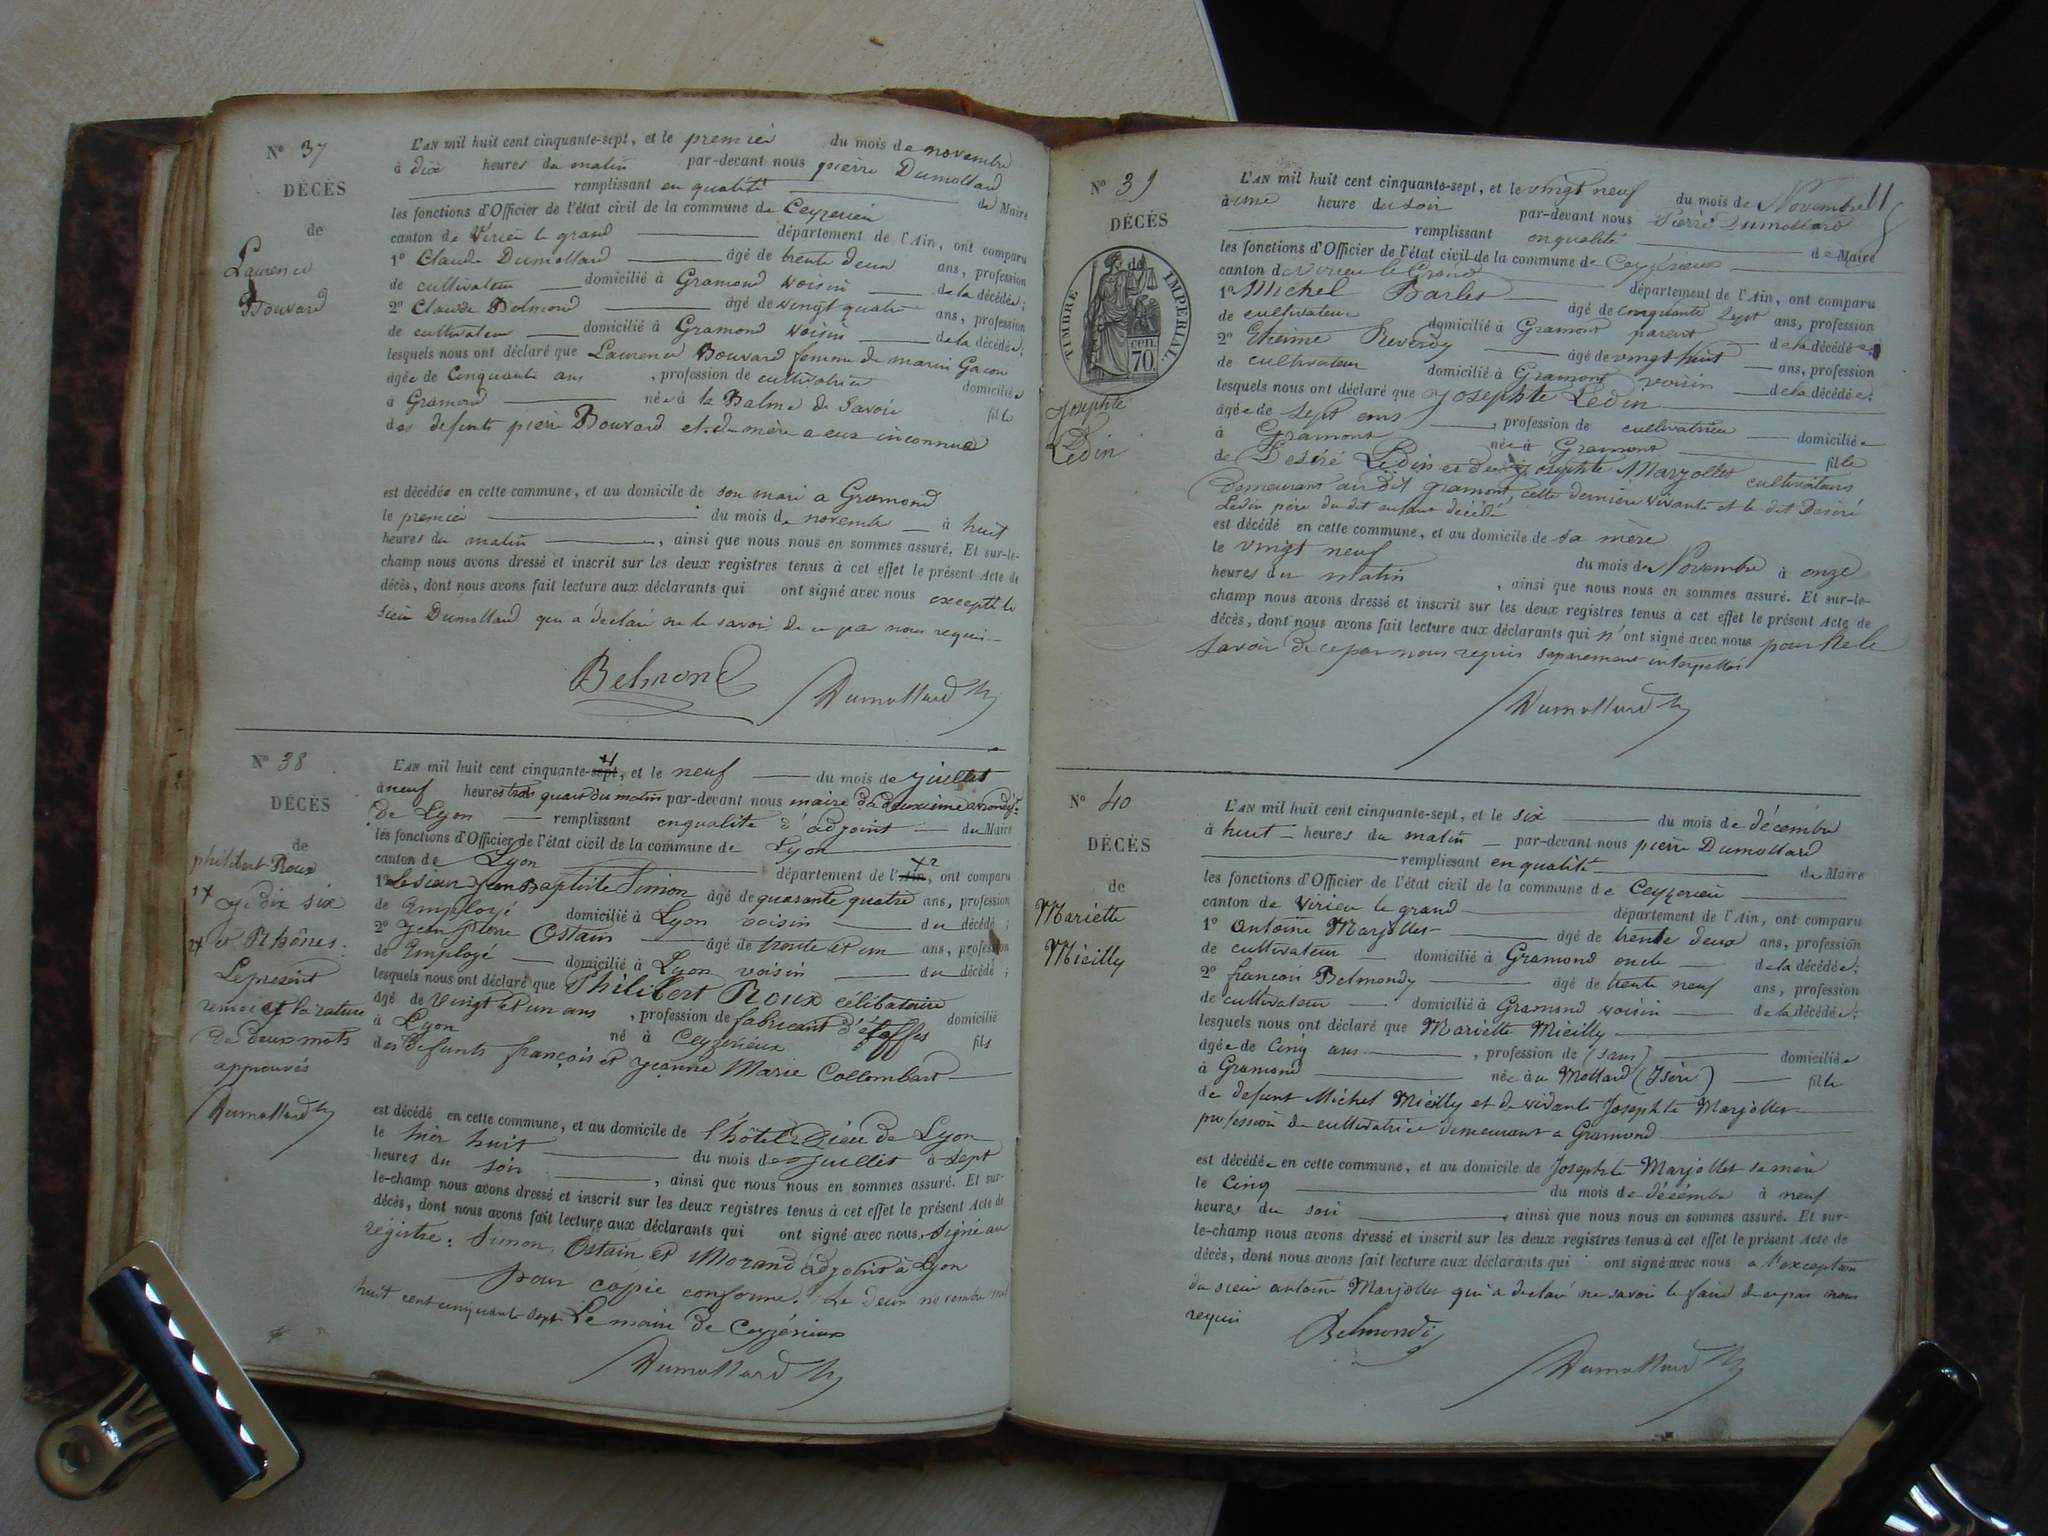 N° 37
DÉCÈS
de
Laurence
Bouvard
L'AN mil huit cent cinquante-sept, et le premier du mois de novembre
à dix heures du matin par-devant nous pierre Dumollard
remplissant en qualité de Maire
les fonctions d'Officier de l'état civil de la commune de Ceyzerieu
canton de Virieu le grand département de l'Ain, ont comparu
1° Claude Dumollard âgé de trente deux ans, profession
de cultivateur domicilié à Gramond voisin de la décédée;
2° Claude Belmond âgé de vingt quatre ans, profession
de cultivateur domicilié à Gramond voisin de la décédée;
lesquels nous ont déclaré que Laurence Bouvard femme de marin Gacon
âgée de Cinquante ans , profession de cultivatrice domiciliée
à Gramond née à la Balme de Savoie fille
des defunts pierre Bouvard et du mère a eux inconnue
est décédée en cette commune, et au domicile de son mari a Gramond
le premier du mois de novembre à huit
heures du matin , ainsi que nous nous en sommes assuré. Et sur-le-
champ nous avons dressé et inscrit sur les deux registres tenus à cet effet le présent Acte de
décès, dont nous avons fait lecture aux déclarants qui ont signé avec nous excepté le
sieur Dumollard qui a déclaré ne le savoir, de ce par nous requi-
Belmond Dumollard
N° 38
DÉCÈS
de
philibert Roux
1x dix six
2x et Rhône:
Le présent
renvoi et la rature
de deux mots
approuvés
Dumollard
L'AN mil huit cent cinquante-sept, et le neuf du mois de juillet
à neuf heures trois quart du matin par-devant nous maire du deuxième arrondist
de Lyon remplissant enqualité d'adjoint du Maire
les fonctions d'Officier de l'état civil de la commune de Lyon
canton de Lyon département de l'Ain, ont comparu
1° le sieur Jean Baptiste Simon âgé de quarante quatre ans, profession
de Employé domicilié à Lyon voisin du décédé;
2° Jean Pierre Ostain âgé de trente et un ans, profession
de Employé domicilié à Lyon voisin du décédé;
lesquels nous ont déclaré que Philibert Roux célibataire
âgé de vingt et un ans , profession de fabricant d'étoffes domicilié
à Lyon né à Ceyzerieux fils
des defunts françois et jeanne Marie Collombard
est décédé en cette commune, et au domicile de l'hôtel Dieu de Lyon
le hier huit du mois de juillet à sept
heures du soir , ainsi que nous nous en sommes assuré. Et sur-
le-champ nous avons dressé et inscrit sur les deux registres tenus à cet effet le présent Acte de
décès, dont nous avons fait lecture aux déclarants qui ont signé avec nous, signé au
régistre: Simon, Ostain et Morand adjoint à Lyon
pour copie conforme. Le Deux novembre mil
huit cent cinquante sept Le maire de Ceyzérieux
Dumollard
N° 39
DÉCÈS
de
TIMBRE IMPERIAL
70 cen.
Josephte
Ledin
L'AN mil huit cent cinquante-sept, et le vingt neuf du mois de Novembre
à une heure du soir par-devant nous Pierre Dumollard
remplissant enqualité de Maire
les fonctions d'Officier de l'état civil de la commune de Ceyzérieux
canton de Virieu le Grand département de l'Ain, ont comparu
1° Michel Barlet âgé de cinquante sept ans, profession
de cultivateur domicilié à Gramont parent de la décédée;
2° Reverdy âgé de vingt huit ans, profession
de cultivateur domicilié à Gramont voisin de la décédée;
lesquels nous ont déclaré que Josephte Ledin
âgée de sept ans , profession de cultivatrice domiciliée
à Gramont née à Gramont fille
de Desiré Ledin et de Josephte Marjollet cultivateurs
Demeurant au dit gramont, cette dernière vivante et le dit Desiré
Ledin père du dit enfant décédé
est décédé en cette commune, et au domicile de sa mère
le vingt neuf du mois de Novembre à onze
heures du matin , ainsi que nous nous en sommes assuré. Et sur-le-
champ nous avons dressé et inscrit sur les deux registres tenus à cet effet le présent Acte de
décès, dont nous avons fait lecture aux déclarants qui n'ont signé avec nous pour ne le
savoir de ce par nous requis separement interpellés
Dumollard
N° 40
DÉCÈS
de
Mariette
Mieilly
L'AN mil huit cent cinquante-sept, et le six du mois de décembre
à huit heures du matin par-devant nous pierre Dumollard
remplissant en qualité de Maire
les fonctions d'Officier de l'état civil de la commune de Ceyzerieu
canton de Virieu le grand département de l'Ain, ont comparu
1° Antoine Marjollet âgé de trente deux ans, profession
de cultivateur domicilié à Gramond oncle de la décédée;
2° françois Belmondy âgé de trente neuf ans, profession
de cultivateur domicilié à Gramond voisin de la décédée;
lesquels nous ont déclaré que Mariette Mieilly
âgée de Cinq ans , profession de (sans) domiciliée
à Gramond née au Mollard (Isère) fille
de defunt Michel Mieilly et de vivante Josephte Marjollet
profession de cultivatrice demeurant a Gramond
est décédée en cette commune, et au domicile de Josephte Marjollet sa mère
le Cinq du mois de décembre à neuf
heures du soir , ainsi que nous nous en sommes assuré. Et sur-
le-champ nous avons dressé et inscrit sur les deux registres tenus à cet effet le présent Acte de
décès, dont nous avons fait lecture aux déclarants qui ont signé avec nous a l'exception
du sieur antoine Marjollet qui a declaré ne savoir le faire de ce par nous
requis
Belmondi Dumollard